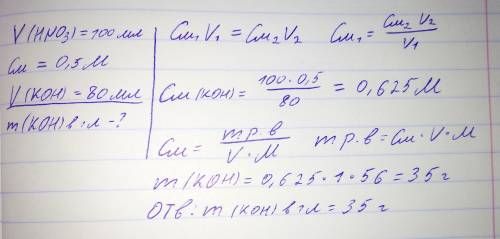 V(HNO₃)=100мл
См = 0,5 М
V(KOH)=80мл
m(KOH) в 1л - ?
См₁V₁ = См₂V₂     См₁ = См₂ V₂ / V₁
См(KOH) = 100·0,5 / 80 = 0,625М
См = mр.в / V·М     mр.в = См·V·М
m(KOH) = 0,625·1·56 = 35г
Отв: m(KOH) в 1л = 35г